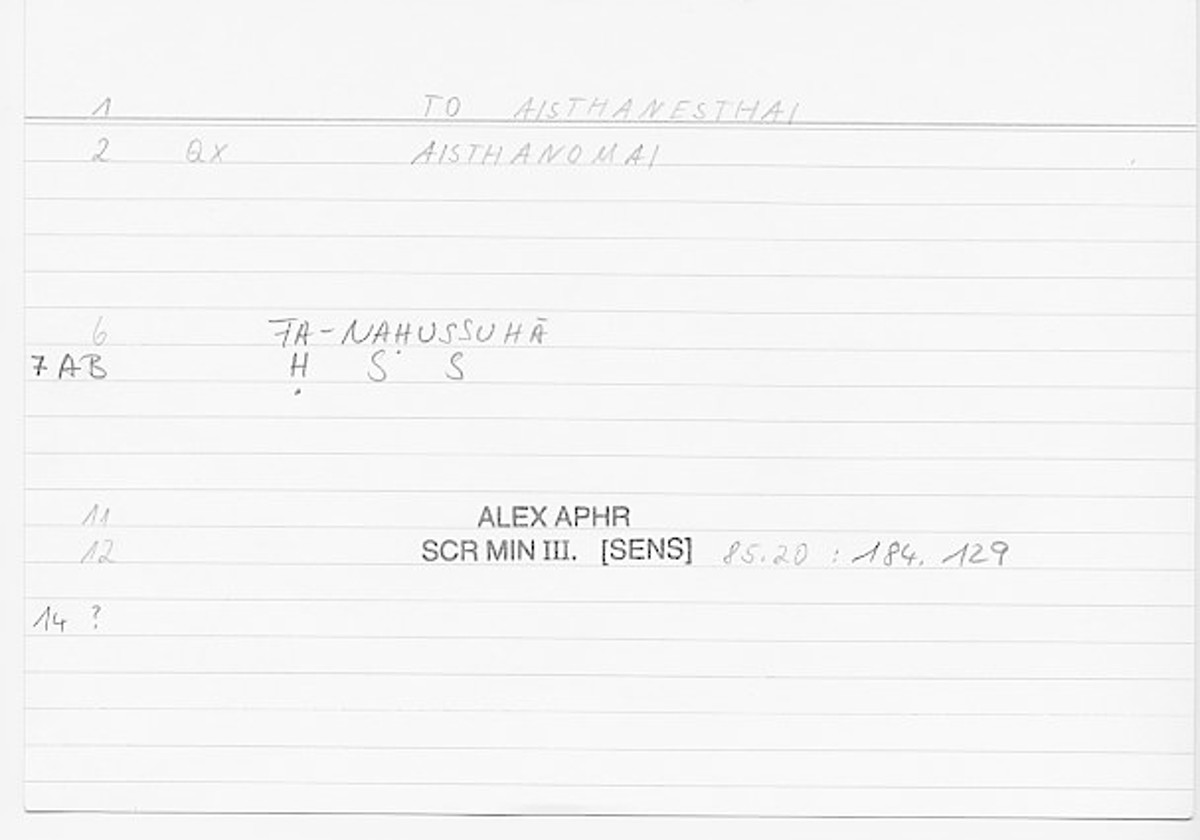 1 TO AISTHANESTHAI
2 QX AISTHANOMAI
6 FA-NAḤUSSUHĀ
7 AB Ḥ S S
11 ALEX APHR
12 SCR MIN III. [SENS] 85.20 : 184. 129
14 ?